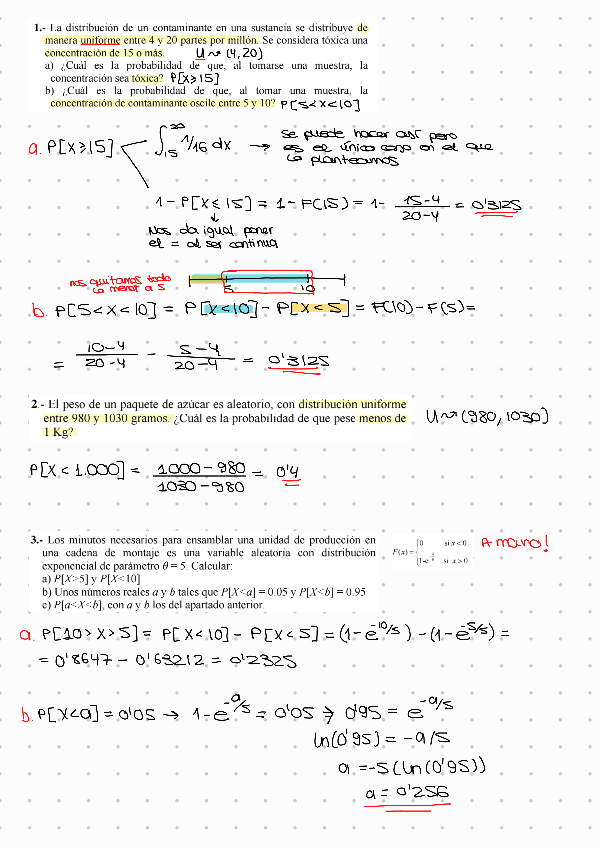 1.- La distribución de un contaminante en una sustancia se distribuye de
manera uniforme entre 4 y 20 partes por millón. Se considera tóxica una
concentración de 15 o más. U ~ (4,20)
a) ¿Cuál es la probabilidad de que, al tomarse una muestra, la
concentración sea tóxica? P[X≥15]
b) ¿Cuál es la probabilidad de que, al tomar una muestra, la
concentración de contaminante oscile entre 5 y 10? P[5<X<10]
a. P[X≥15] ∫₁₅²⁰ 1/16 dx → Se puede hacer así pero
es el único caso en el que
lo planteamos
1 - P[X≤15] = 1 - F(15) = 1 - (15-4)/(20-4) = 0'3125
Nos da igual poner
el = al ser continua
nos quitamos todo
lo menor a 5
5 10
b. P[5<X<10] = P[X<10] - P[X<5] = F(10) - F(5) =
= (10-4)/(20-4) - (5-4)/(20-4) = 0'3125
2.- El peso de un paquete de azúcar es aleatorio, con distribución uniforme
entre 980 y 1030 gramos. ¿Cuál es la probabilidad de que pese menos de
1 Kg?
U ~ (980, 1030)
P[X < 1.000] = (1000 - 980)/(1030 - 980) = 0'4
3.- Los minutos necesarios para ensamblar una unidad de producción en
una cadena de montaje es una variable aleatoria con distribución
exponencial de parámetro θ = 5. Calcular:
a) P[X>5] y P[X<10]
b) Unos números reales a y b tales que P[X<a] = 0.05 y P[X<b] = 0.95
c) P[a<X<b], con a y b los del apartado anterior.
F(x) = { 0 si x < 0
1-e^(-x/θ) si x > 0
A mano!
a. P[10>X>5] = P[X<10] - P[X<5] = (1-e^(-10/5)) - (1-e^(-5/5)) =
= 0'8647 - 0'63212 = 0'2325
b. P[X<a] = 0'05 → 1-e^(-a/5) = 0'05 → 0'95 = e^(-a/5)
ln(0'95) = -a/5
a = -5(ln(0'95))
a = 0'256